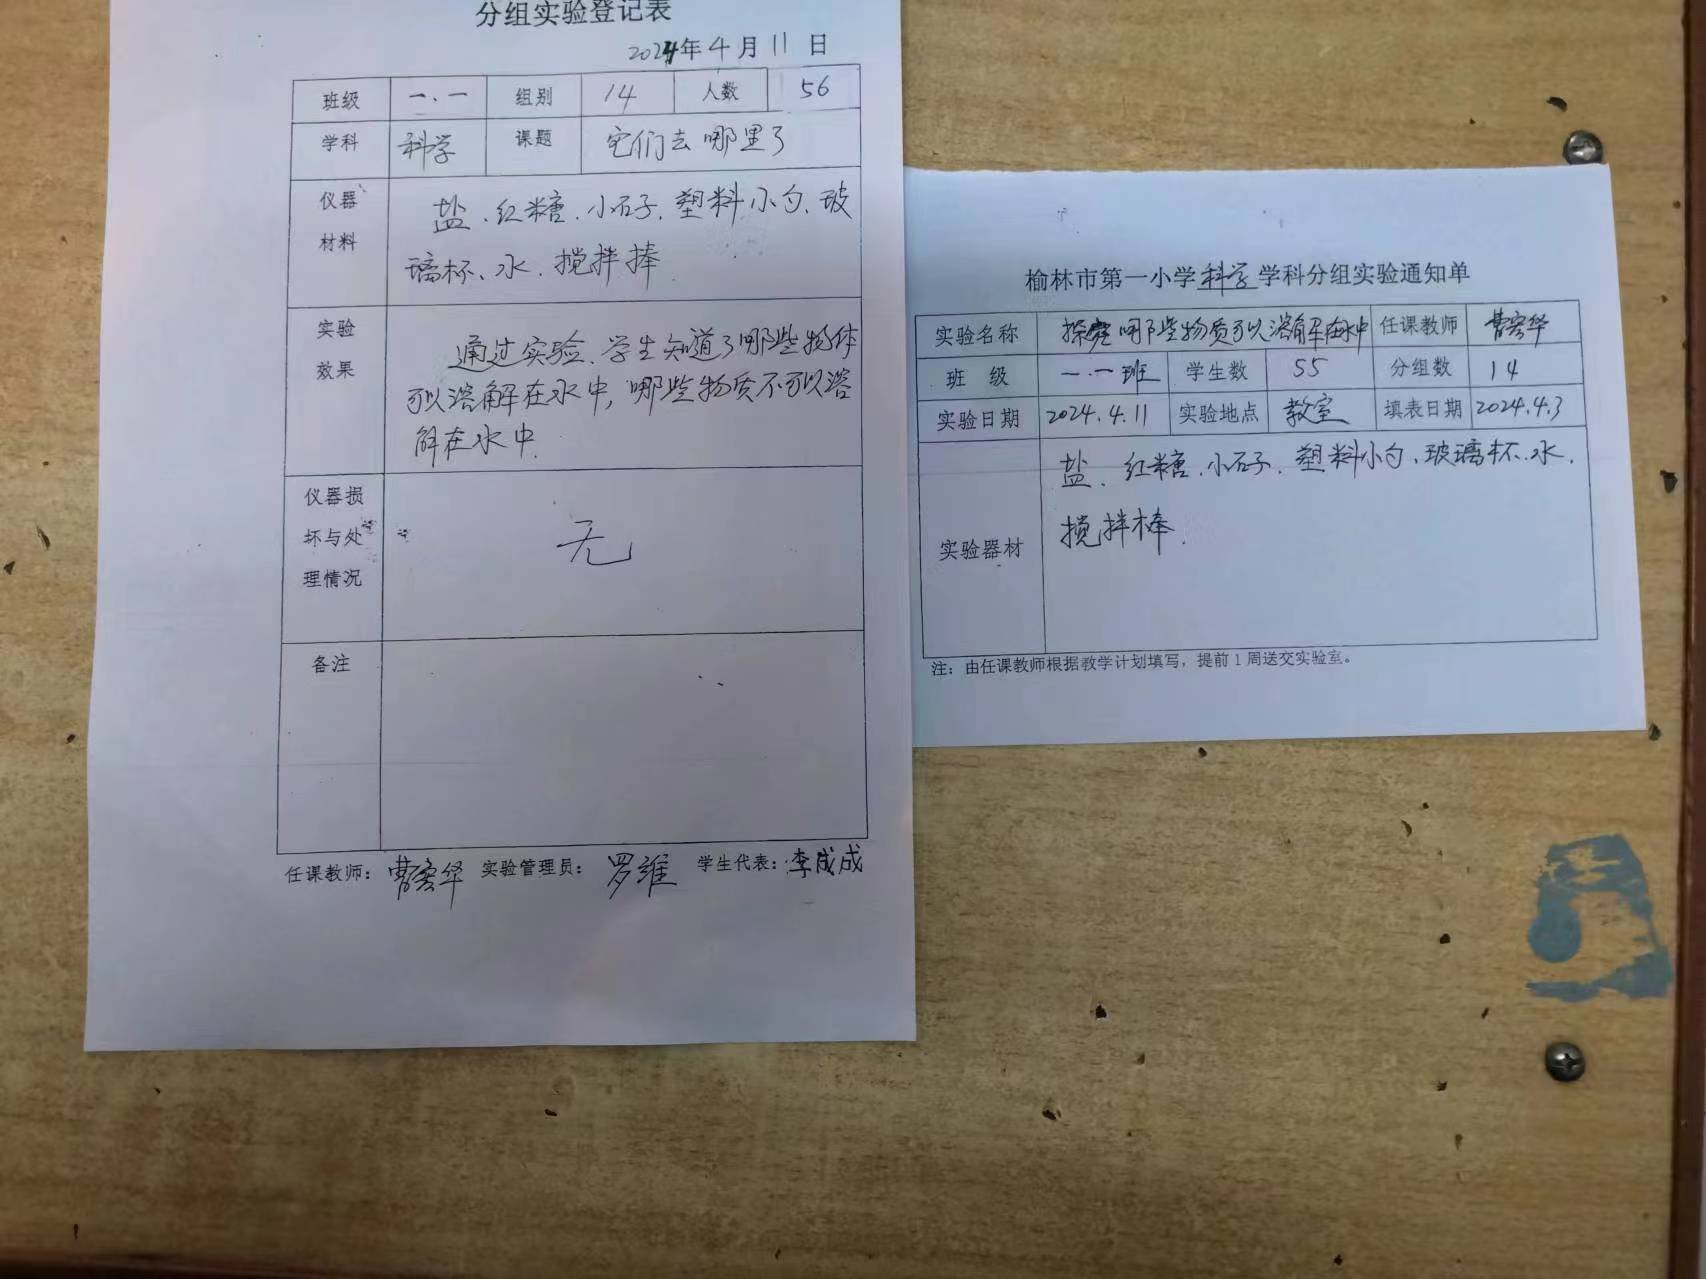 分组实验登记表
2024年4月11日
班级 一.一 组别 14 人数 56
学科 科学 课题 它们去哪里了
仪器材料 盐、红糖、小石子、塑料小勺、玻
璃杯、水、搅拌棒
实验效果 通过实验、学生知道了哪些物体
可以溶解在水中,哪些物质不可以溶
解在水中.
仪器损坏与处理情况 无
备注
任课教师: 曹 华 实验管理员: 罗维 学生代表: 李成成
榆林市第一小学科学学科分组实验通知单
实验名称 探究哪些物质可以溶解在水中 任课教师 曹 华
班 级 一.一班 学生数 55 分组数 14
实验日期 2024.4.11 实验地点 教室 填表日期 2024.4.3
实验器材 盐、红糖、小石子、塑料小勺、玻璃杯、水、
搅拌棒.
注:由任课教师根据教学计划填写,提前1周送交实验室。